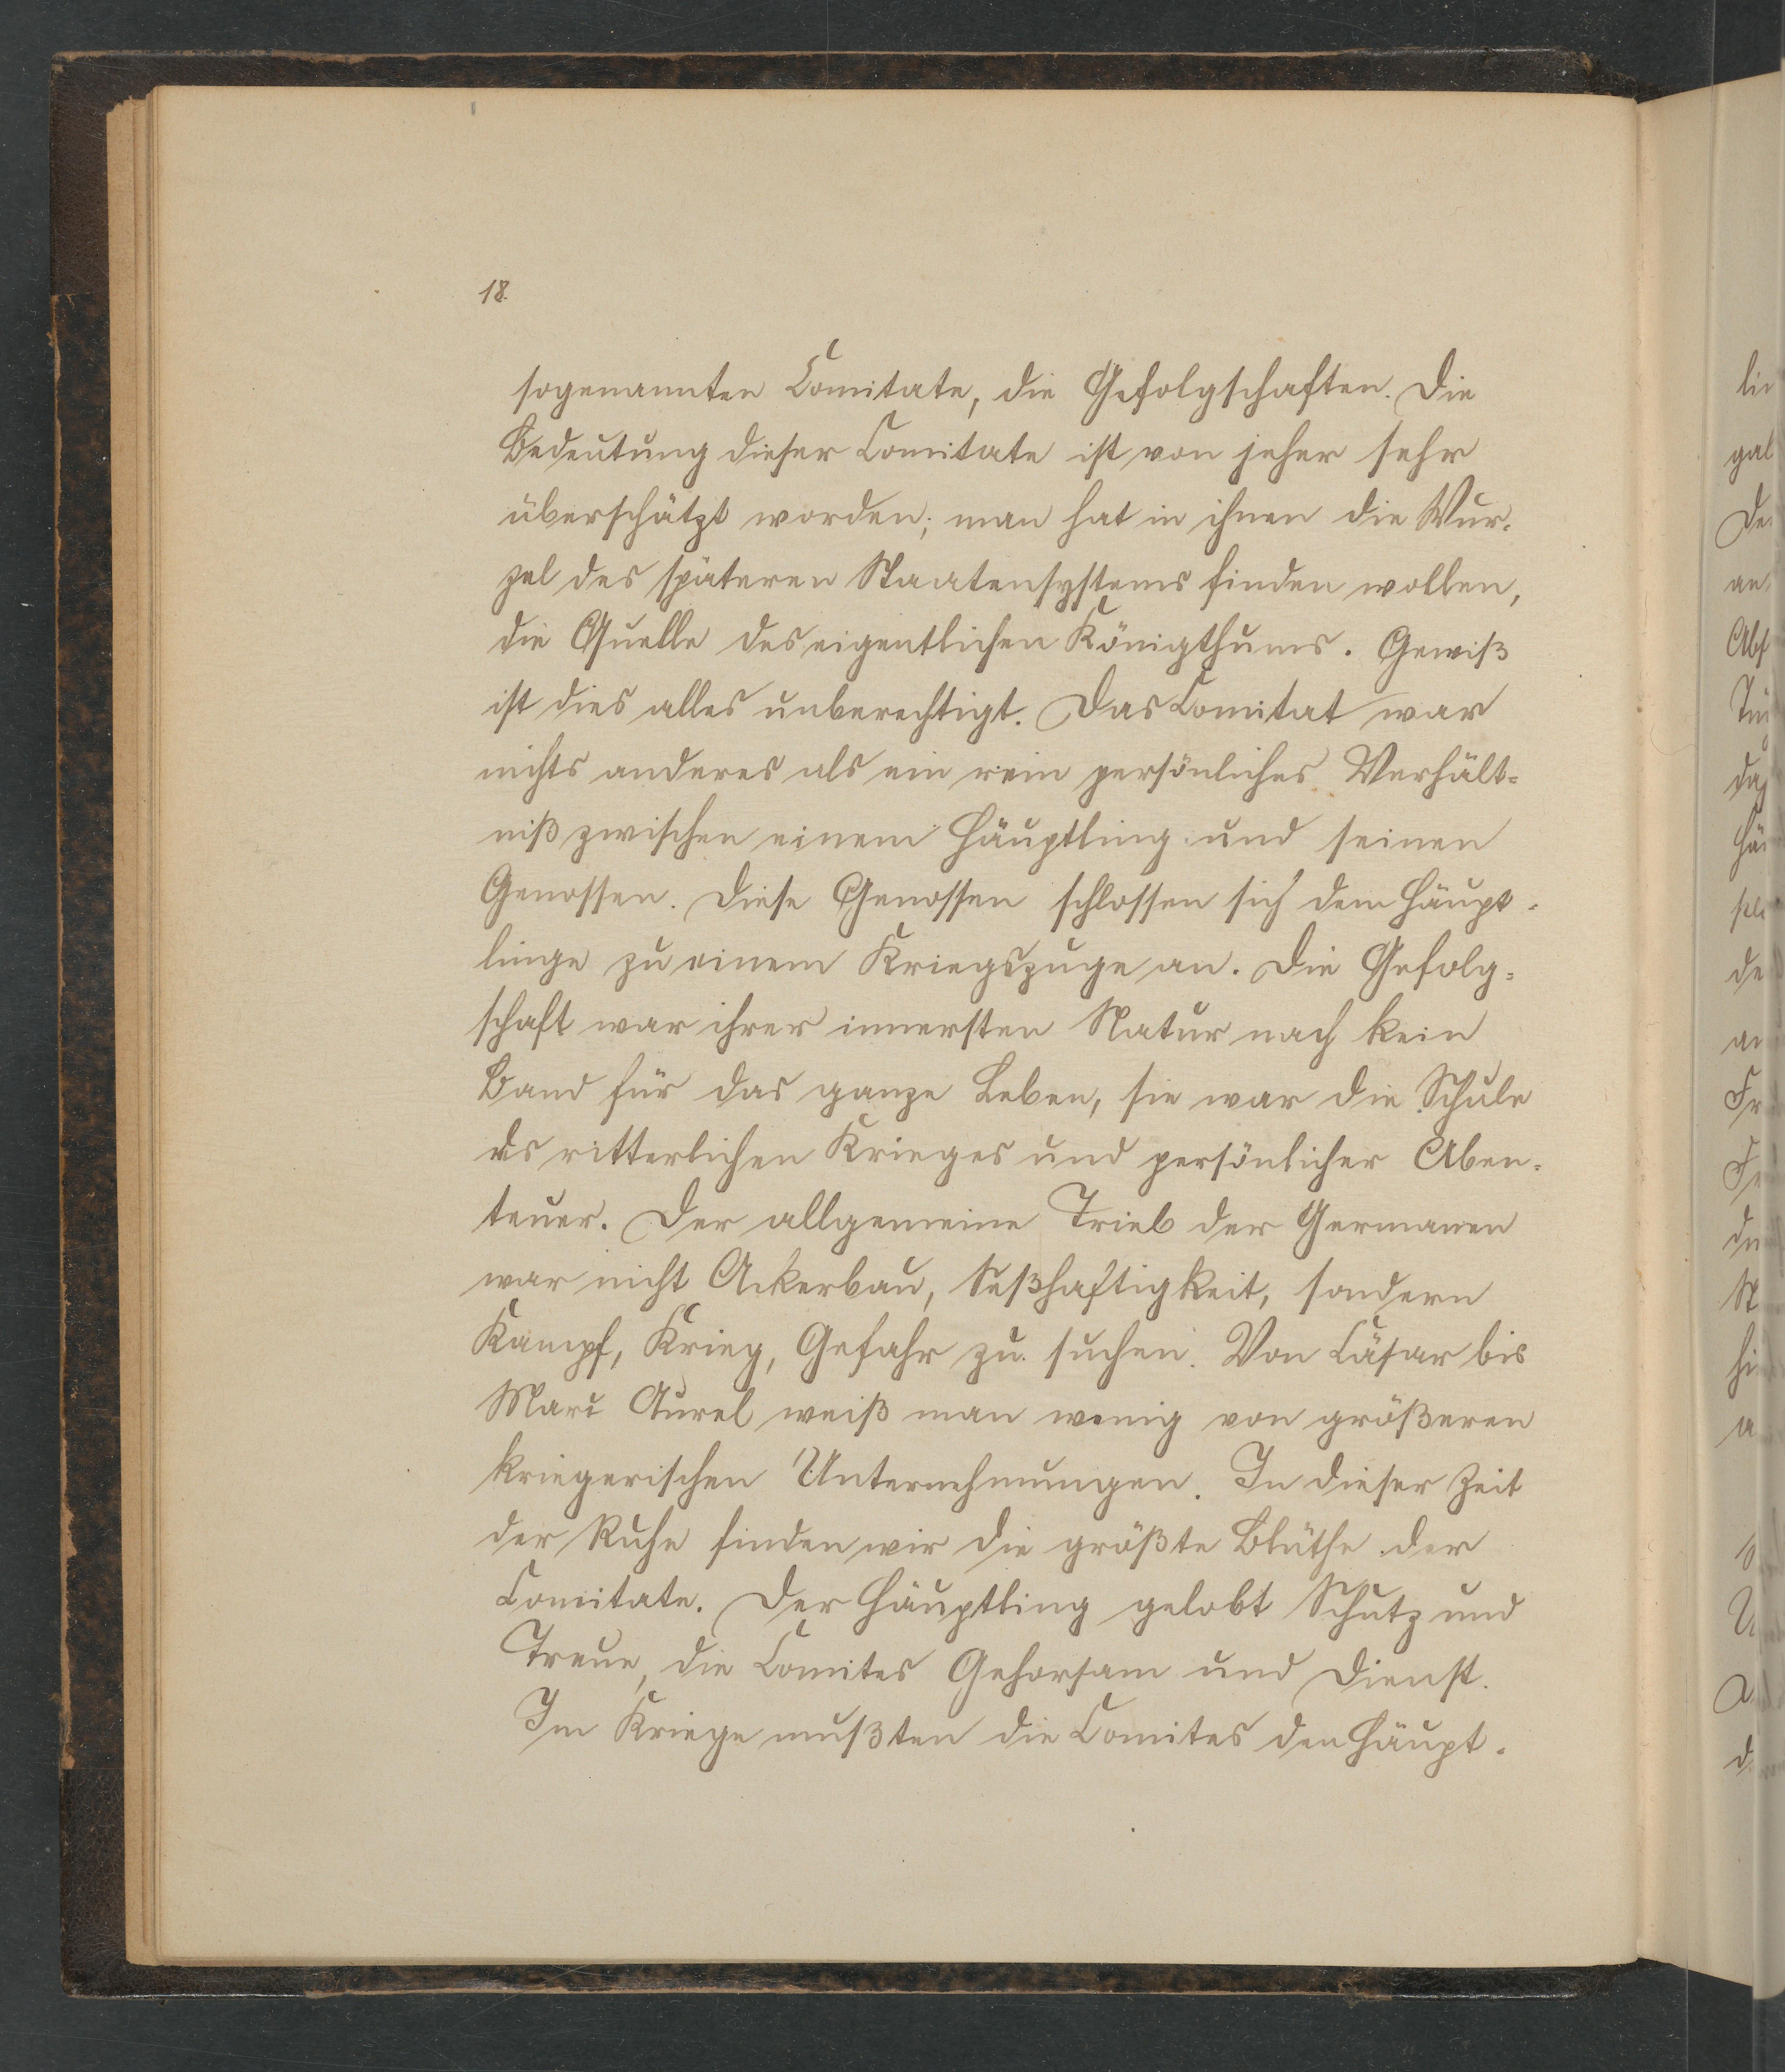 18.
sogenannten Comitate, die Gefolgschaften. Die
Bedeutung dieser Comitate ist von jeher sehr
überschätzt worden; man hat in ihnen die Wur-
zel des späteren Staatensystems finden wollen,
die Quelle des eigentlichen Königthums. Gewiß
ist dies alles unberechtigt. Das Comitat war
nichts anderes als ein rein persönliches Verhält-
niß zwischen einem Häuptling und seinen
Genossen. Diese Genossen schlossen sich dem Häupt-
linge zu einem Kriegszuge an. Die Gefolg-
schaft war ihrer innersten Natur nach kein
Band für das ganze Leben, sie war die Schule
des ritterlichen Krieges und persönlicher Aben-
teuer. Der allgemeine Trieb der Germanen
war nicht Ackerbau, Seßhaftigkeit, sondern
Kampf, Krieg, Gefahr zu suchen. Von Cäsar bis
Marc Aurel weiß man wenig von größeren
kriegerischen Unternehmungen. In dieser Zeit
der Ruhe finden wir die größte Blüthe der
Comitate. Der Häuptling gelobt Schutz und
Treue, die Comites Gehorsam und Dienst.
Im Kriege mußten die Comites den Häupt-